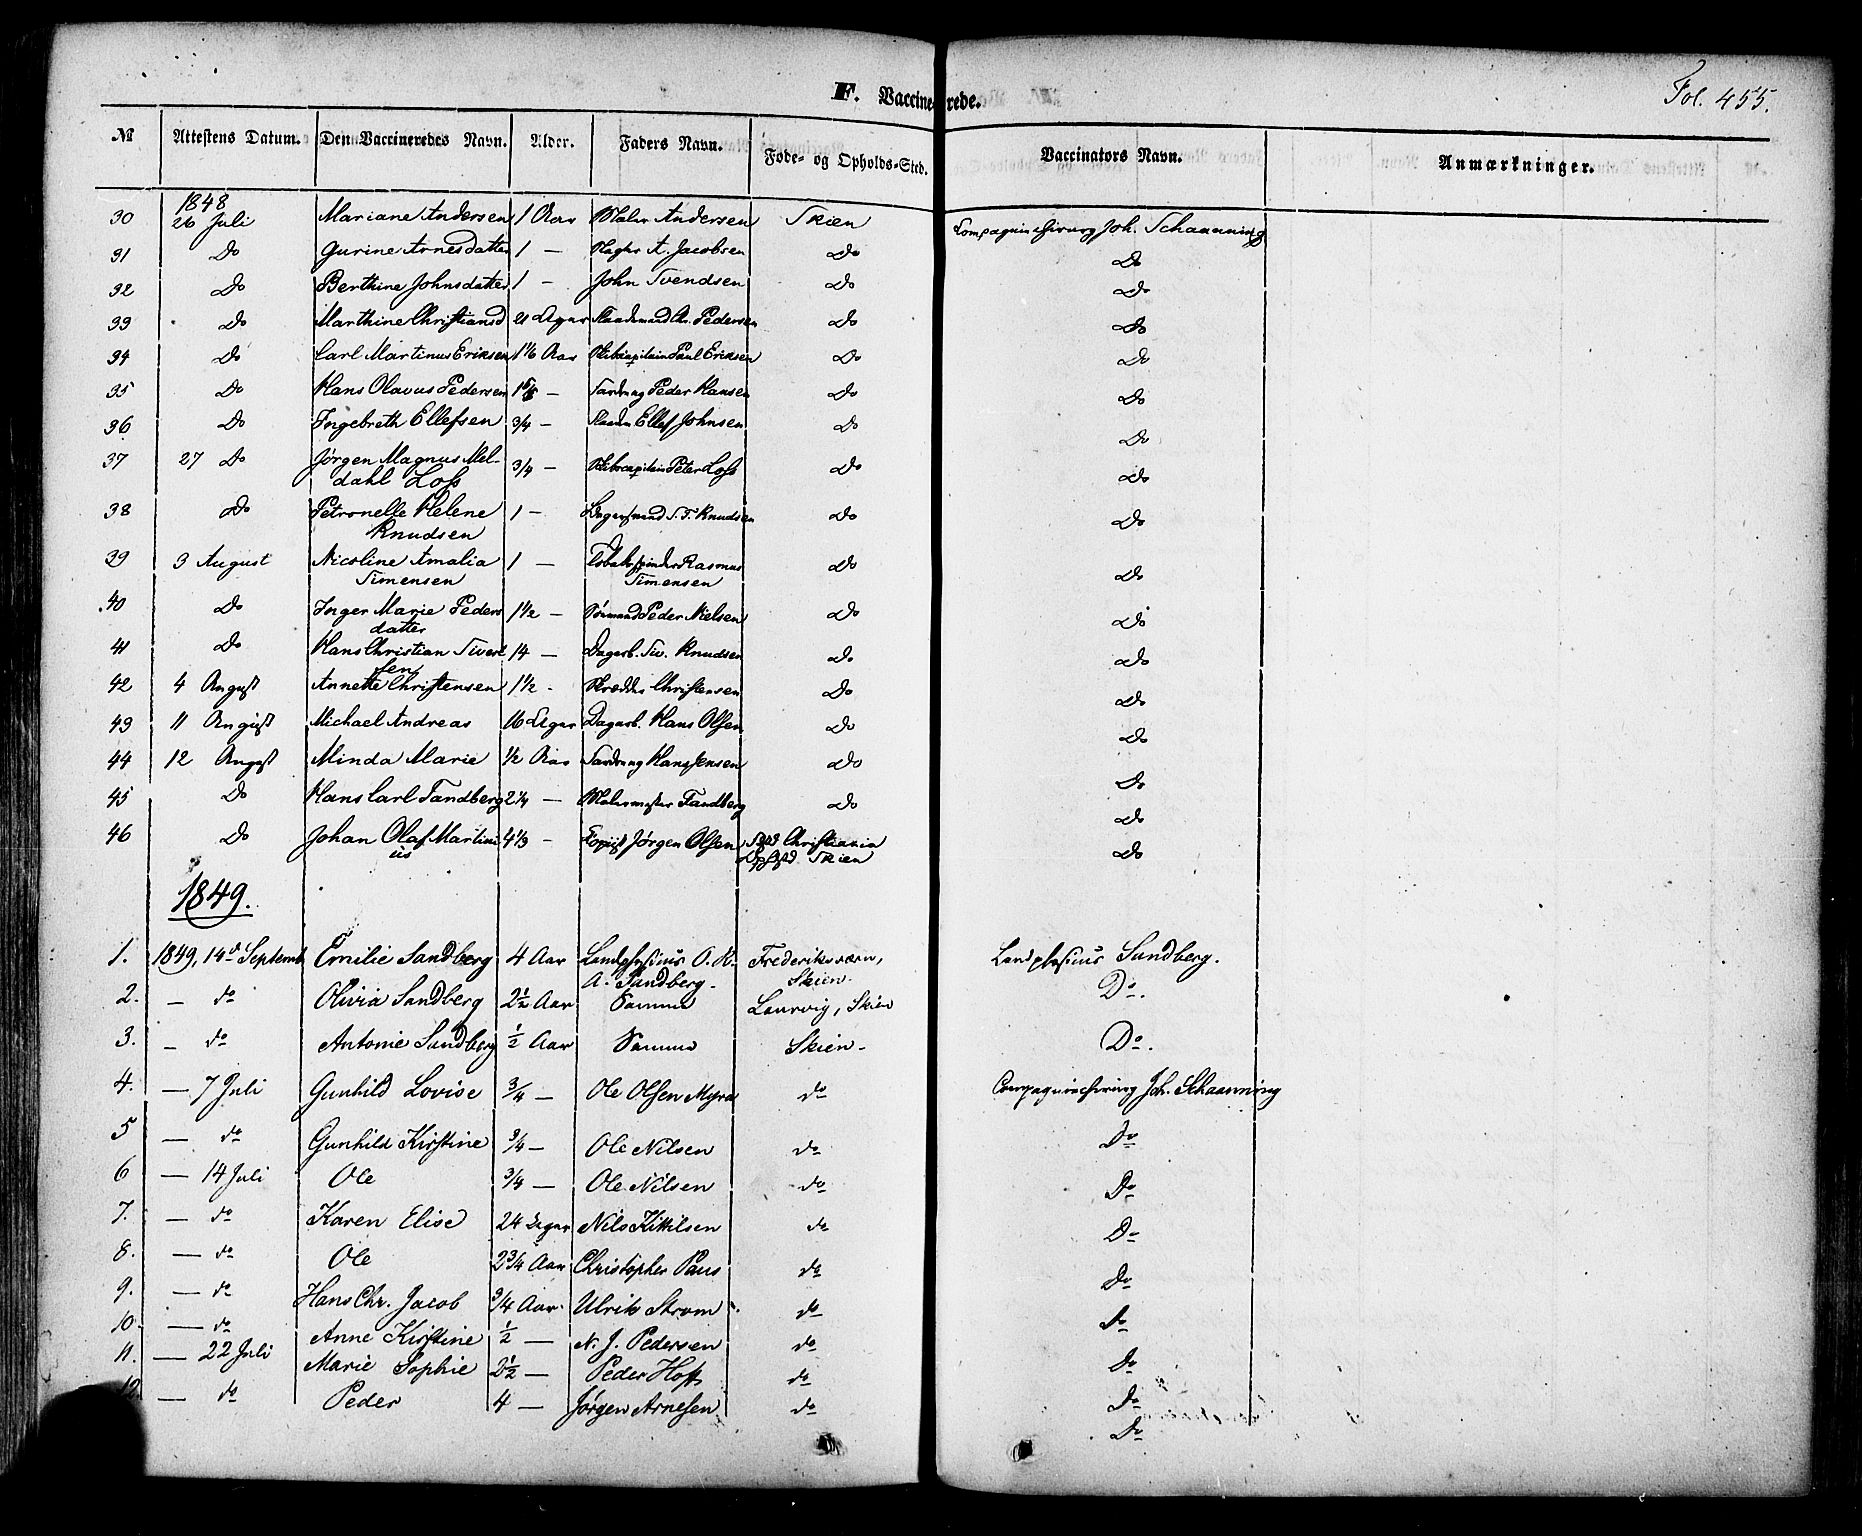 F. Vaccinerede.
Fol. 455.
№ Attestens Datum. Den Vaccineredes Navn. Alder. Faders Navn. Føde- og Opholds-Sted. Vaccinators Navn. Anmærkninger.
1848
30 26 Juli Mariane Andersen 1 Aar Maler Andersen Skien Compagnichirurg Joh. Schaanning
31 Do Gurine Arnesdatter 1 — A. Jacobsen Do Do
32 Do Berthine Johnsdatter 1 - John Svendsen Do Do
33 Do Marthine Christiansd 21 Uger Chr. Pedersen Do Do
34 Do Carl Martinus Eriksen 1 1/6 Aar Skibscapitain Paul Eriksen Do Do
35 Do Hans Olavus Pedersen — Peder Hansen Do Do
36 Do Ingebreth Ellefsen 3/4 - Ellef Johnsen Do Do
37 27 Do Jørgen Magnus Mel-
dahl Loss 3/4 — Skibscapitain Peter Loss Do Do
38 Do Petronelle Helene
Knudsen 1 - S. T. Knudsen Do Do
39 3 August Nicoline Amalia
Simensen 1 — Tobaksspinder Rasmus
Simensen Do Do
40 Do Inger Marie Peders
datter 1 1/2 — Peder Nielsen Do Do
41 Do Hans Christian Sivert
sen 14 — Dagarb. Siv. Knudsen Do Do
42 4 August Annette Christensen 1 1/2 - Skrædder Christensen Do Do
43 11 August Michael Andreas 16 Uger Dagarb. Hans Olsen Do Do
44 12 August Minda Marie 1/2 Aar Hans Jensen Do Do
45 Do Hans Carl Tandberg 2 1/4 — Malermester Tandberg Do Do
46 Do Johan Olaf Martini
us 4 1/3 - Copiist Jørgen Olsen Fsted Christiania
Opsted Skien Do
1849.
1. 1849, 14d Septemb Emilie Sandberg 4 Aar Landphysicus O. R.
A. Sandberg. Frederiksværn,
Skien. Landphysicus Sandberg.
2. — do Olivia Sandberg 2 1/2 Aar Samme Laurvig, Skien Do.
3. — do Antonie Sandberg 1/2 Aar Samme Skien. Do.
4. — 7 Juli Gunhild Lovise 3/4 — Ole Olsen Myra do Compagniechirurg Joh. Schaanning
5 — do Gunhild Kirstine 3/4 — Ole Nilsen do Do
6 — 14 Juli Ole 3/4 — Ole Nilsen do Do
7. — do Karen Elise 24 Uger Nils Kittilsen do Do
8. — do Ole 2 3/4 Aar Christopher Paus do Do
9. — do Hans Chr. Jacob 3/4 Aar. Ulrik Strøm do Do
10. — do Anne Kirstine 1/2 — N. J. Pedersen do Do
11. — 22 Juli Marie Sophie 2 1/2 — Peder Hoff do Do
12. — do Peder 4 — Jørgen Arnesen do Do